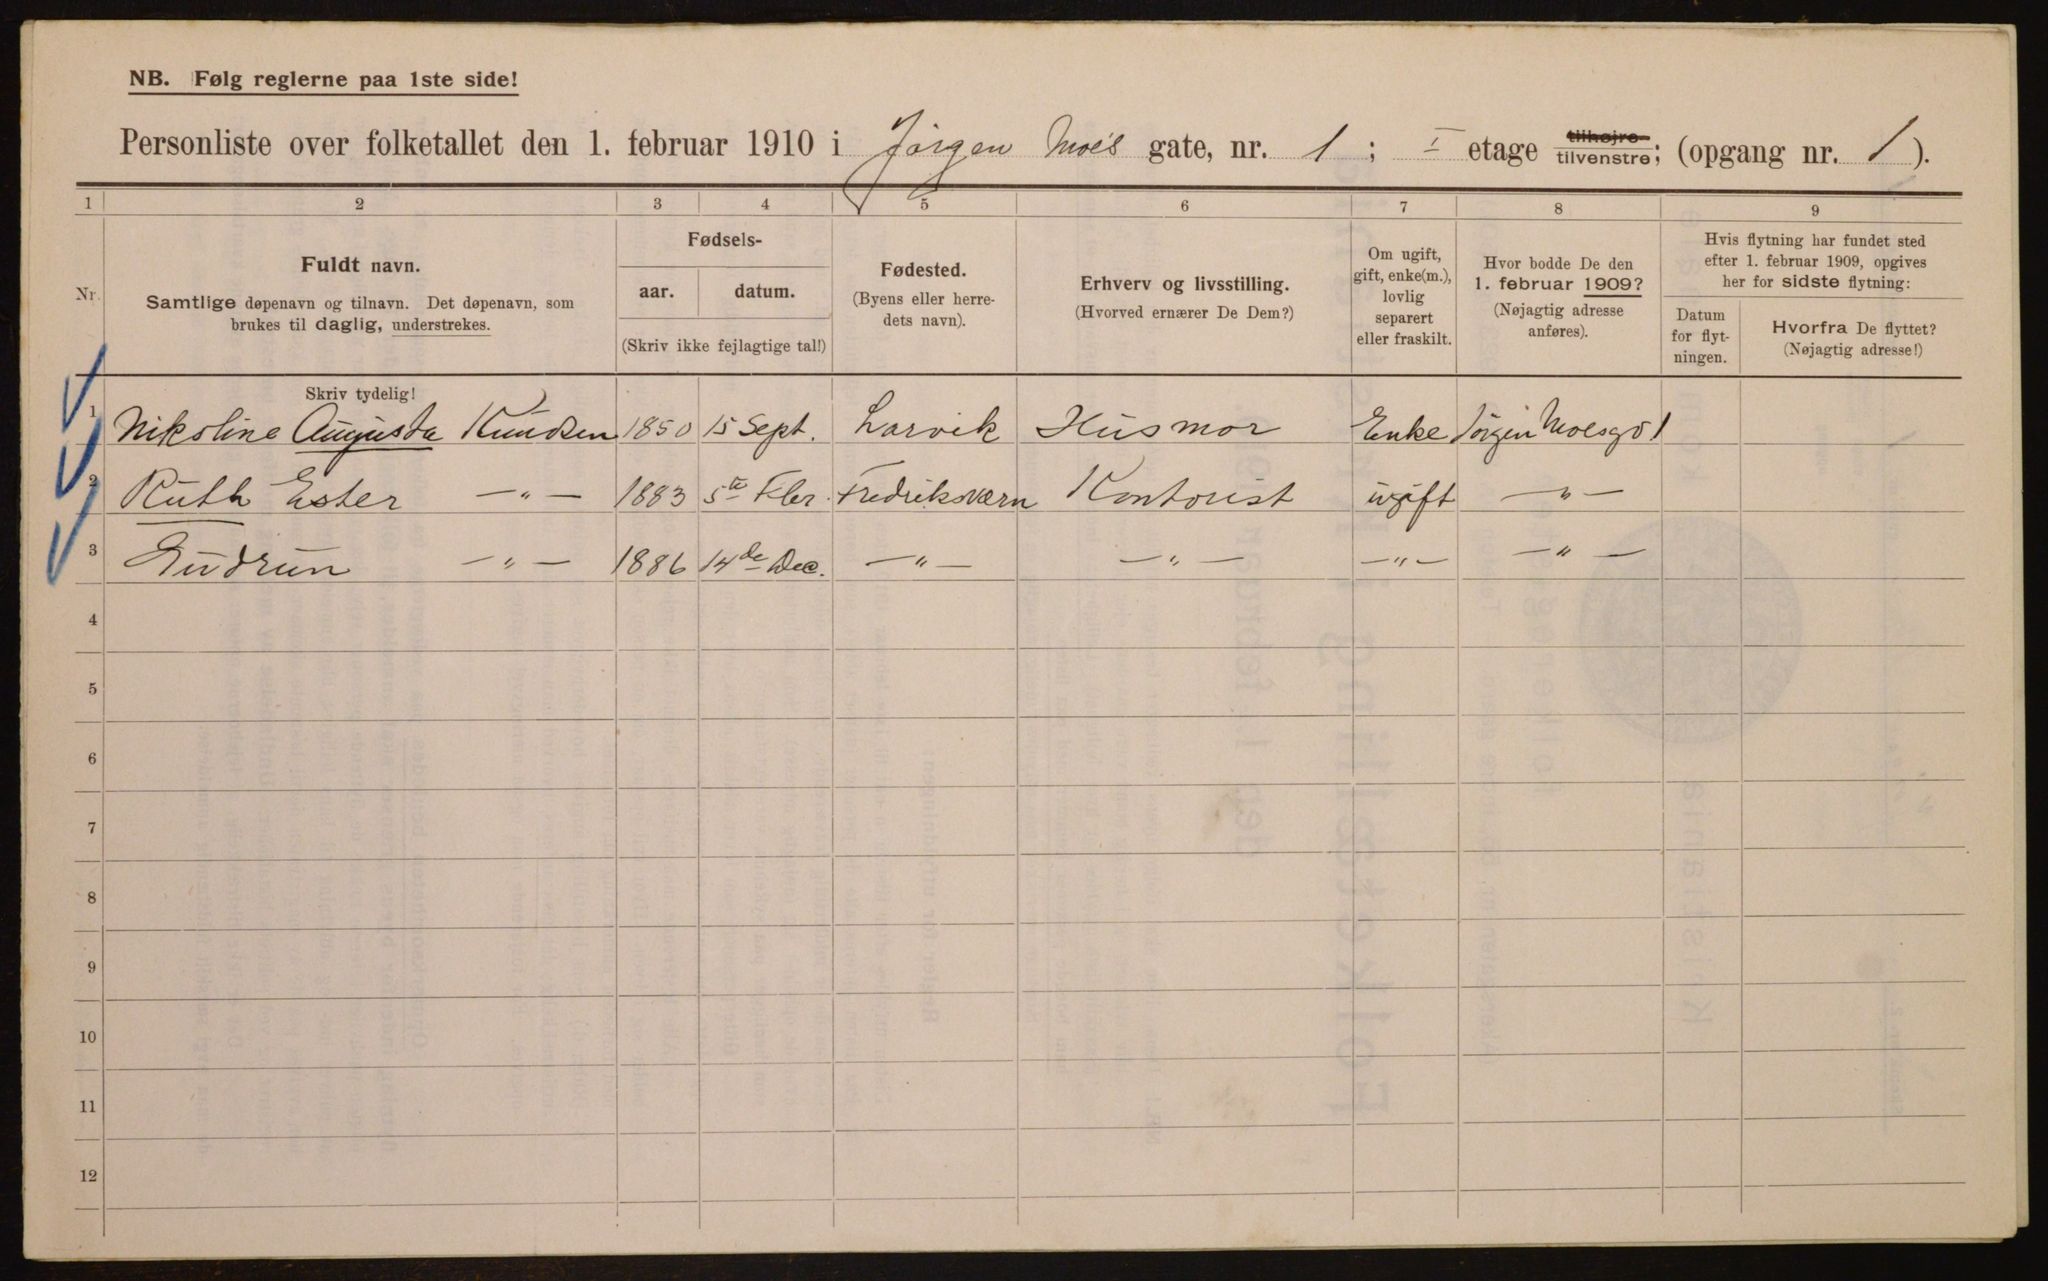 NB. Følg reglerne paa 1ste side!
Personliste over folketallet den 1. februar 1910 i Jørgen Moes gate, nr. 1; I etage tilhøjre tilvenstre; (opgang nr. 1).
1 2 3 4 5 6 7 8 9
Nr.
Fuldt navn.
Samtlige døpenavn og tilnavn. Det døpenavn, som
brukes til daglig, understrekes.
Fødsels-
aar. datum.
(Skriv ikke fejlagtige tal!)
Fødested.
(Byens eller herre-
dets navn).
Erhverv og livsstilling.
(Hvorved ernærer De Dem?)
Om ugift,
gift, enke(m.),
lovlig
separert
eller fraskilt.
Hvor bodde De den
1. februar 1909?
(Nøjagtig adresse
anføres).
Hvis flytning har fundet sted
efter 1. februar 1909, opgives
her for sidste flytning:
Datum
for flyt-
ningen.
Hvorfra De flyttet?
(Nøjagtig adresse!)
Skriv tydelig!
1 Nikoline Augusta Knudsen 1850 15 Sept. Larvik Husmor Enke Jørgen Moesg 1
2 Ruth Ester —„— 1883 5te Fbr. Fredriksværn Kontorist ugift —„—
3 Gudrun —„— 1886 14de Dec. —„— —„— —„— —„—
4
5
6
7
8
9
10
11
12